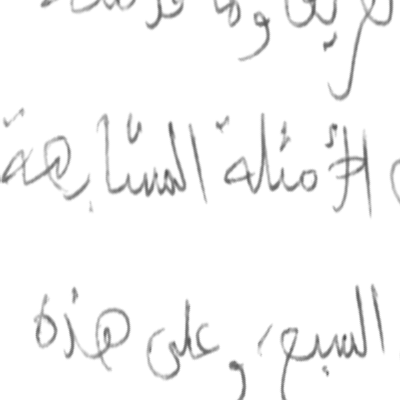 الأمثلة المتشابهة
السبع، وعلى هذه